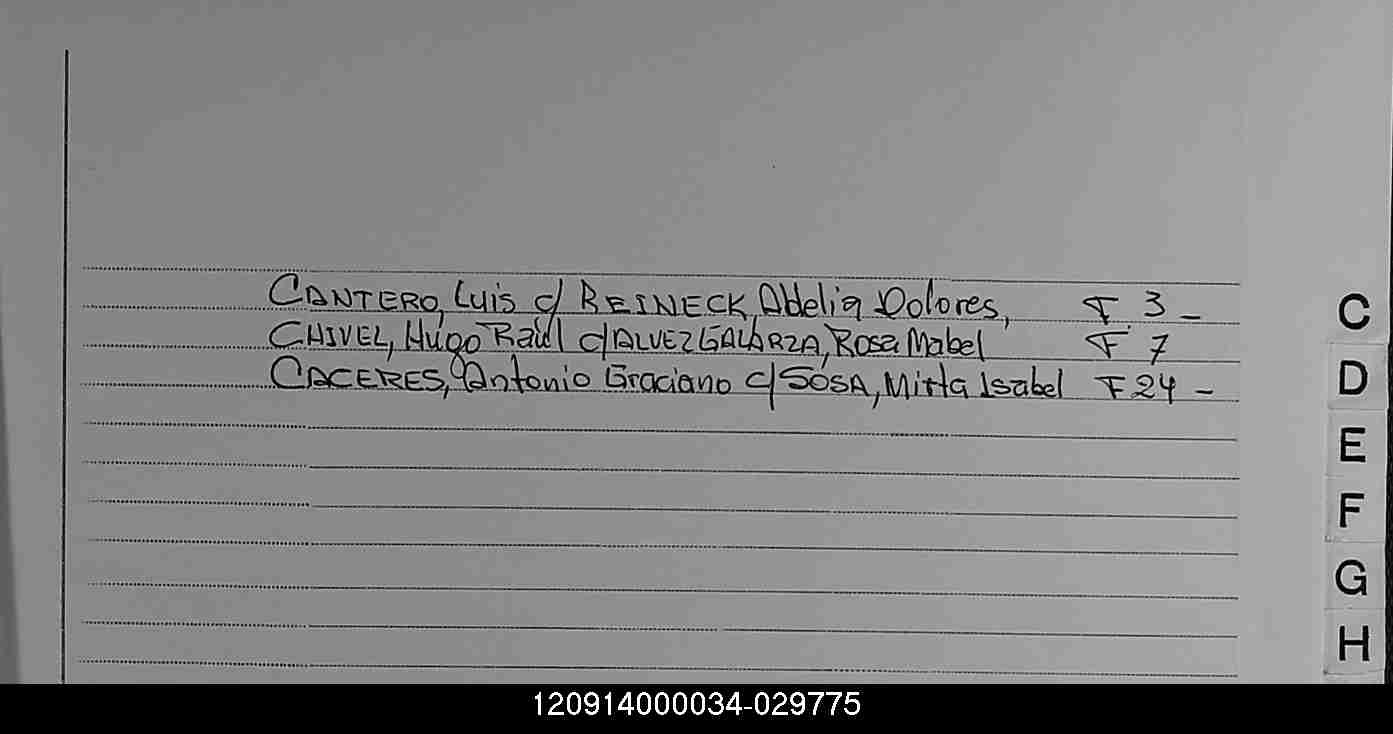 CANTERO, Luis c/ REINECK, Adelia Dolores, F 3 -
CHIVEL, Hugo Raúl c/ ALVEZ GALARZA, Rosa Mabel F 7
CACERES, Antonio Graciano c/ SOSA, Mirta Isabel F 24 -
C
D
E
F
G
H
120914000034-029775